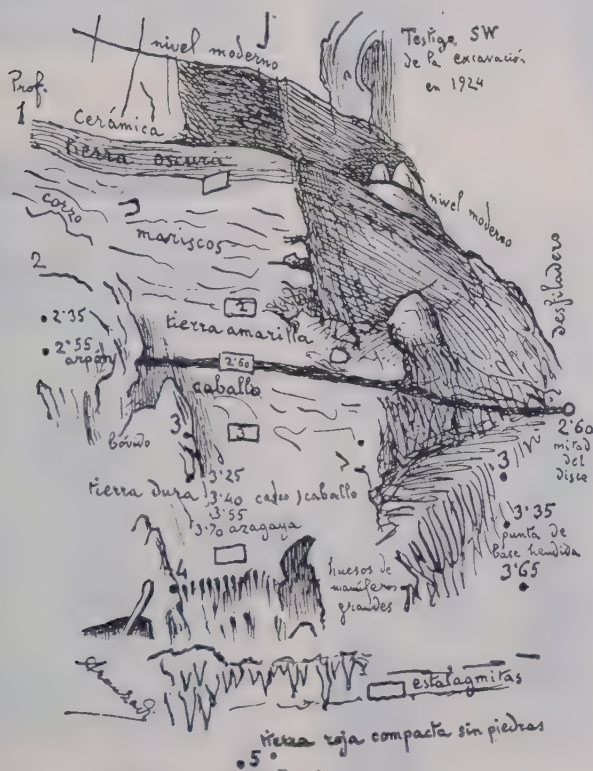 nivel moderno
Testigo SW
de la excavación
en 1924
Prof.
1
Cerámica
tierra oscura
corzo
mariscos
nivel moderno
desfiladero
2
2
tierra amarilla
2'35
2'55
arpón
2'60
caballo
2'60
mitad
del
disco
bóvido
3
3
3
3'25
tierra dura
3'40 caballo
3'55
3'70 azagaya
3'35
punta de
base hendida
3'65
4
huesos de
mamíferos
grandes
estalagmitas
tierra roja compacta sin piedras
5